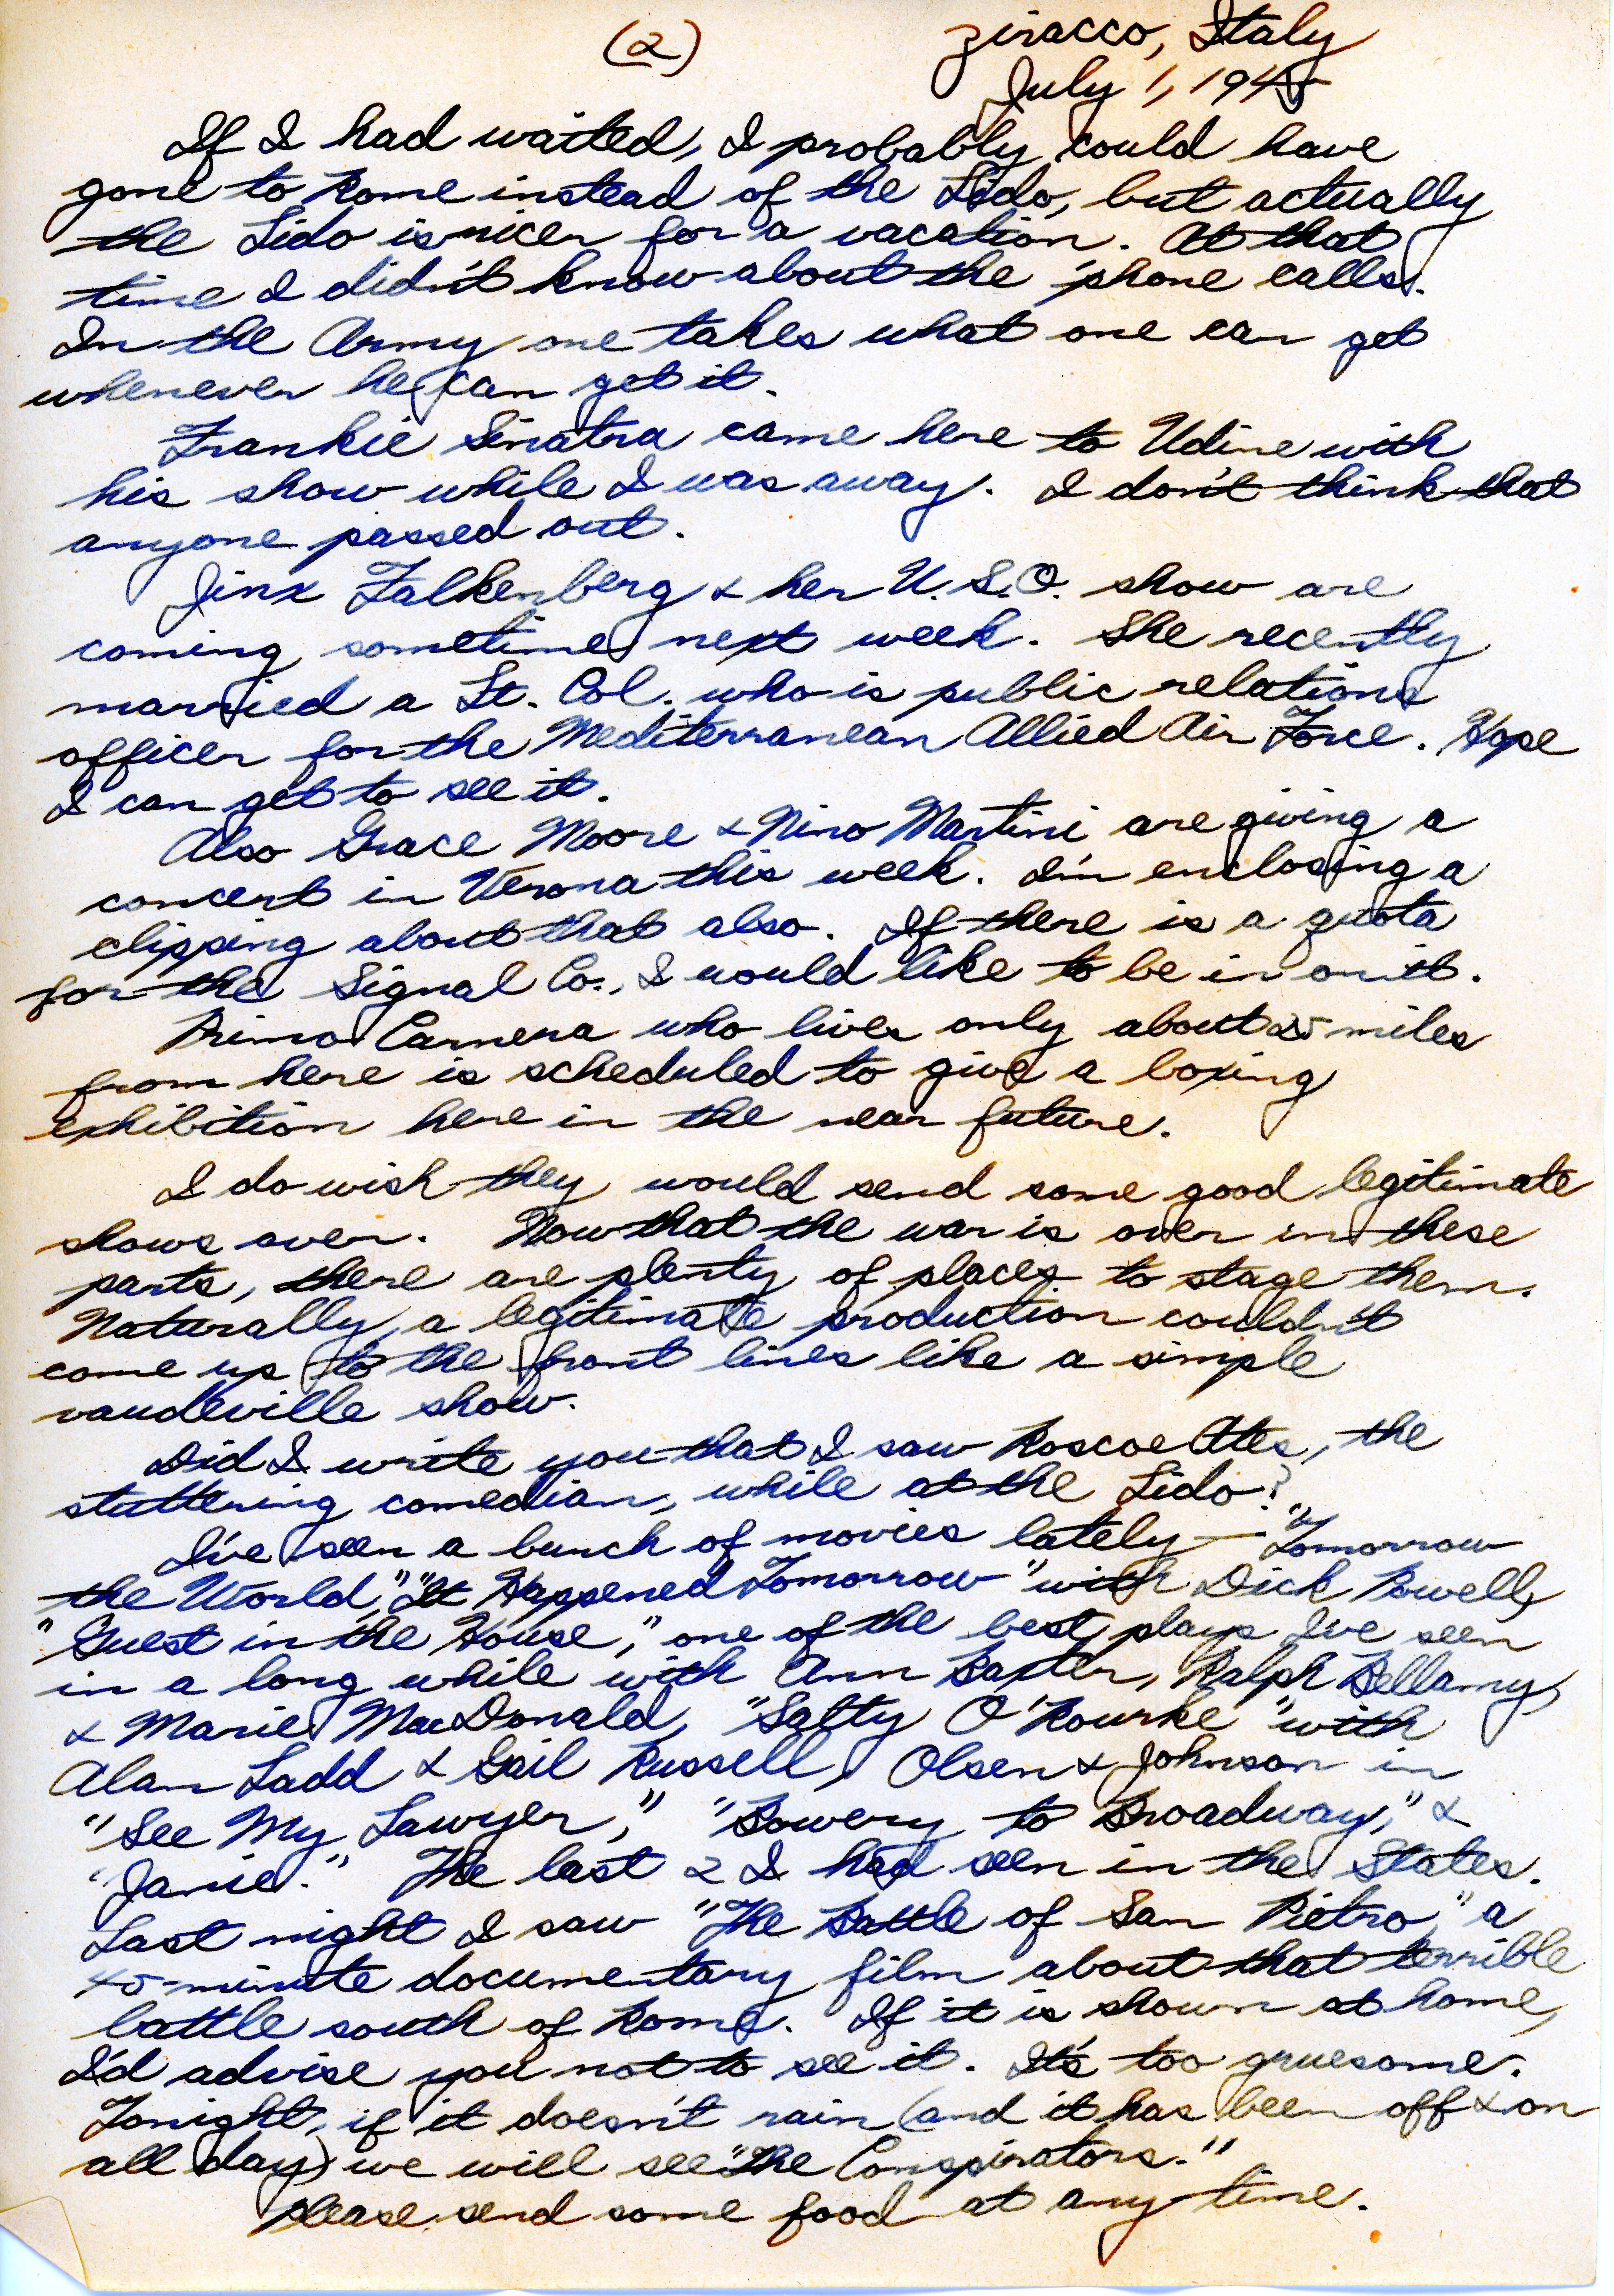 (2)
Ziracco, Italy
July 1, 1945
If I had waited, I probably could have
gone to Rome instead of the Lido, but actually
the Lido is nicer for a vacation. At that
time I didn't know about the 'phone calls.
In the Army one takes what one can get
whenever he can get it.
Frankie Sinatra came here to Udine with
his show while I was away. I don't think that
anyone passed out.
Jinx Falkenberg & her U.S.O. show are
coming sometime next week. She recently
married a Lt. Col. who is public relations
officer for the Mediterranean Allied Air Force. Hope
I can get to see it.
Also Grace Moore & Nino Martini are giving a
concert in Verona this week. I'm enclosing a
clipping about that also. If there is a quota
for the Signal Co., I would like to be in on it.
Primo Carnera who lives only about 25 miles
from here is scheduled to give a boxing
exhibition here in the near future.
I do wish they would send some good legitimate
shows over. Now that the war is over in these
parts, there are plenty of places to stage them.
Naturally, a legitimate production couldn't
come up to the front lines like a simple
vaudeville show.
Did I write you that I saw Roscoe Ates, the
stuttering comedian, while at the Lido?
I've seen a bunch of movies lately — "Tomorrow
the World," "It Happened Tomorrow" with Dick Powell,
"Guest in the House," one of the best plays I've seen
in a long while with Ann Baxter, Ralph Bellamy,
& Marie MacDonald, "Salty O'Rourke" with
Alan Ladd & Gail Russell, Olsen & Johnson in
"See My Lawyer," "Bowery to Broadway," &
"Janie." The last 2 I had seen in the States.
Last night I saw "The Battle of San Pietro," a
45-minute documentary film about that terrible
battle south of Rome. If it is shown at home,
I'd advise you not to see it. It's too gruesome.
Tonight, if it doesn't rain (and it has been off & on
all day) we will see "The Conspirators."
Please send some food at any time.